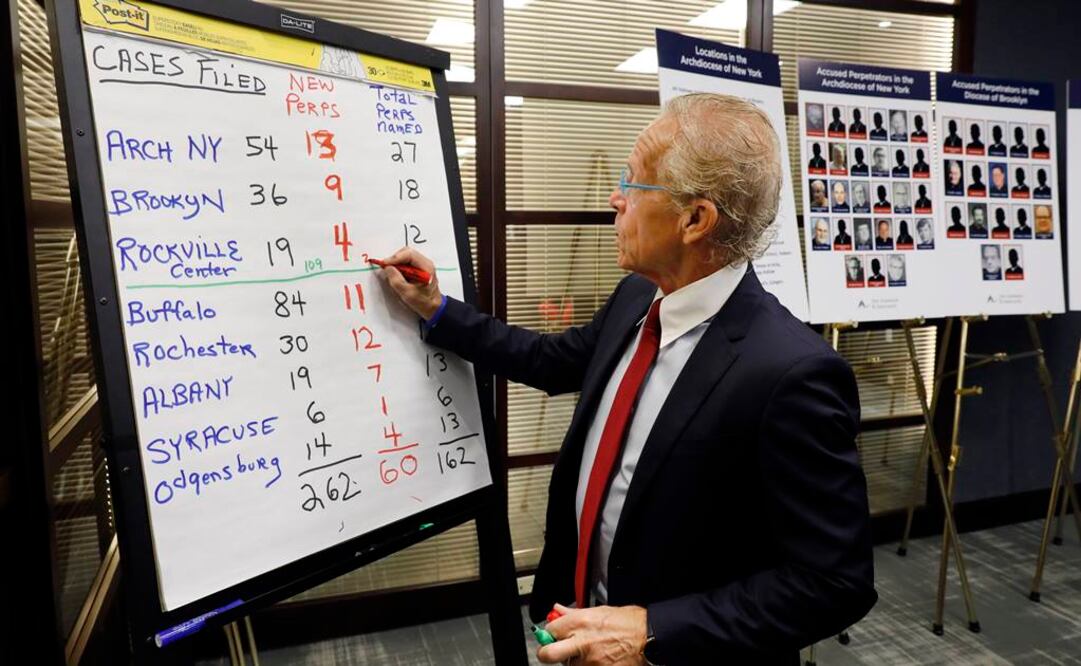 Post-it
DA-LITE
30
3M
CASES FILED
NEW PERPS
TOTAL PERPS NAMED
ARCH NY 54 13 27
BROOKYN 36 9 18
ROCKVILLE Center 19 4 12
109
Buffalo 84 11
Rochester 30 12
ALBANY 19 7 13
SYRACUSE 6 1 6
Odgensburg 14 4 13
262 60 162
Locations in the
Archdiocese of New York
Accused Perpetrators in the
Archdiocese of New York
Accused Perpetrators in the
Diocese of Brooklyn